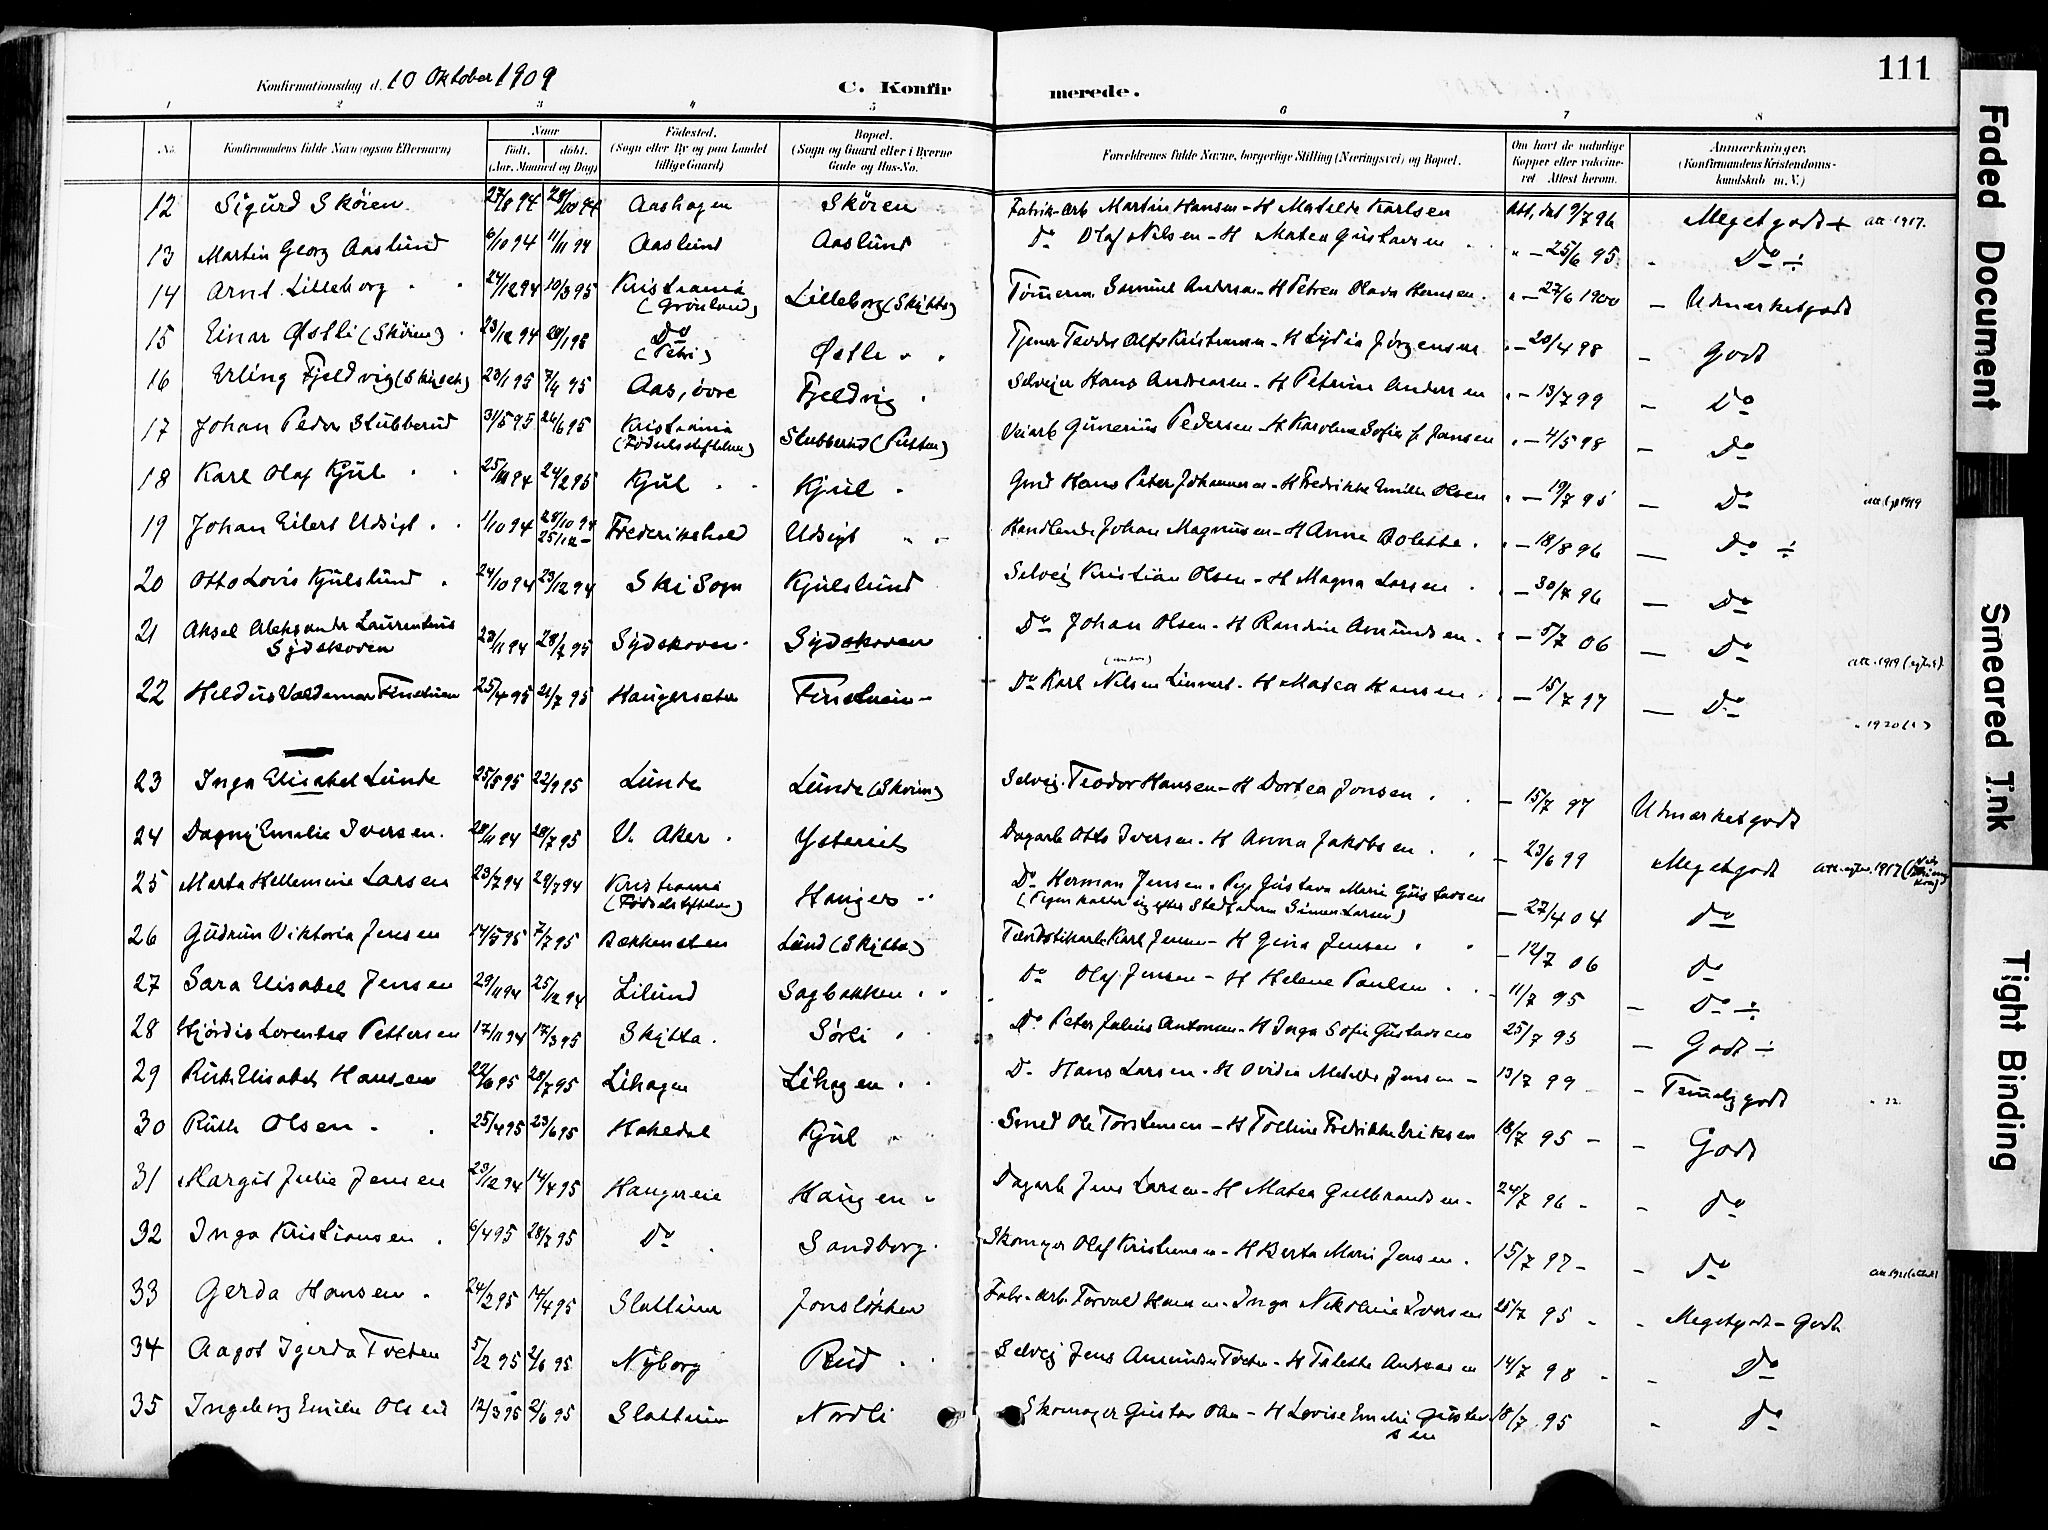 111
Konfirmationsdag d. 10 Oktober 1909
C. Konfir merede.
1 2 3 4 5 6 7 8
No. Konfirmandens fulde Navn (ogsaa Efternavn) Naar født. døbt. (Aar, Maaned og Dag) Fødested. (Sogn eller By og paa Landet tillige Gaard) Bopæl. (Sogn og Gaard eller i Byerne Gade og Hus-No. Forældrenes fulde Navne, borgerlige Stilling (Næringsvei) og Bopæl. Om havt de naturlige Kopper eller vaccineret. Attest herom. Anmærkninger. (Konfirmandens Kristendomskundskab m. V.)
12 Sigurd Skören 27/8 94 Aashagen Skören Fabrik-arb Martin Hansen - H Matilde Karlsen Att. dat 9/7 96 Megetgodt + att. 1917.
13 Martin Georg Aaslund 6/10 94 11/11 94 Aaslund Aaslund Do Olaf Nilsen - H Matea Gustavsen " - 25/6 95 - Do ÷
14 Arnt Lilleborg 24/12 94 10/3 95 Kristiania (Grönland) Lilleborg (Skytta) Tömerm Samuel Andersen - H Petrea Olava Hansen " - 27/6 1900 - Udmærketgodt
15 Einar Østli (Skören) 23/12 94 Do (Petri) Østli Tjener Teodor Olfs Kristiansen - H Lydia Jörgensen " - 20/4 98 - Godt
16 Erling Fjeldvig 23/1 95 7/4 95 Aas, övre Fjeldvig Selveier Hans Andreasen - H Petrine Andersen " - 13/7 99 - Do
17 Johan Peder Stubberud 31/5 95 26/6 95 Kristiania (Födselsstiftelsen) Stubberud (Putten) Veiarb Gunerius Pedersen - H Karoline Sofie f. Jansen " - 4/5 98 - Do
18 Karl Olaf Kjul 24/2 95 Kjul Kjul Grd Hans Peter Johannesen - H Fredrikke Emilie Olsen " - 19/7 95 - Do
19 Johan Eilert Udsigt 1/10 94 28/10 94 Frederikshald Udsigt Handlende Johan Magnusen - H Anne Bolette " - 18/8 96 - Do ÷
20 Otto Lovis Kjulslund 24/10 94 23/12 94 Ski Sogn Kjulslund Selvej Kristian Olsen - H Magna Larsen - 30/7 96 - Do
21 Aksel Aleksander Laurentius Sydskoven 23/11 94 28/7 95 Sydskoven Sydskoven Do Johan Olsen - H Randine Amundsen " - 5/7 06 - Do
22 Heldus Valdemar 25/4 95 21/7 95 Haugersæter Do Karl Nilsen Linnert - H Matea Hansen - 15/7 97 - Do
23 Inga Elisabet Lunde 25/5 95 22/9 95 Lunde Lunde (Skören) Selvej. Teodor Hansen - H Dortea Jonsen - 15/7 97 Udmærketgodt
24 Dagny Emilie Iversen 28/11 94 28/7 95 V. Aker Dagarb Otto Iversen - H Anna Jakobsen - 23/6 99 Megetgodt
25 Marta Hellemine Larsen 23/7 94 29/7 94 Kristiania (Födselsstiftelsen) Haugers Do Herman Jensen - Pige Gustava Marie Gustavsen
(Pigen kalder sig efter Stedfaderen Simen Larsen) - 27/4 04 Do
26 Gudrun Viktoria Jensen 14/5 95 7/7 95 Bækkensten Lund (Skytta) Tændstikarb Karl Jensen - H Gina Jensen - 12/7 06 Do
27 Sara Elisabet Jensen 29/11 94 25/12 94 Lilund Sagbakken Do Olaf Jensen - H Helene Paulsen - 11/7 95 - Do ÷
28 Hjördis Lorentse Pettersen 17/11 94 17/3 95 Skytta Sörli Do Peter Julius Antonsen - H Inga Sofie Gustavsen 25/7 95 - Godt ÷
29 Rut Elisabet Hansen 22/6 95 28/7 95 Lihagen Lihagen Do Hans Larsen - H Ovidia Matilde Jensen - 13/7 99 - Temeliggodt
30 Ruth Olsen 25/4 95 23/6 95 Hakedal Kjul Smed Ole Torstensen - H Toline Fredrikke Eriksen 18/7 95 - - Godt
31 Margit Julie Jensen 23/12 94 14/4 95 Haugereie Haugen Dagarb Jens Larsen - H Matea Gulbrandsen - 24/7 96 - - Do
32 Inga Kristiansen 6/4 95 28/7 95 Do Sandborg Skomager Olaf Kristiansen - H Berta Marie Jensen 15/7 97 - - Do
33 Gerda Hansen 24/2 95 14/4 95 Slattum Jonsløkken Fabr. arb. Torvald Hansen - Inga Nikoline Iversen 25/7 95 - - Megetgodt - Godt
34 Aagot Igerda Tveten 5/2 95 2/6 95 Nyborg Rud Selvej Jens Amundsen Tveten - H Talette Andersen 14/7 98 - - Do
35 Ingeborg Emilie Olsen 12/3 95 2/6 95 Slattum Nordli Skomager Gustav Olsen - H Lovise Emelie Gustavsen 18/7 95 - Do
Faded Document
Smeared Ink
Tight Binding